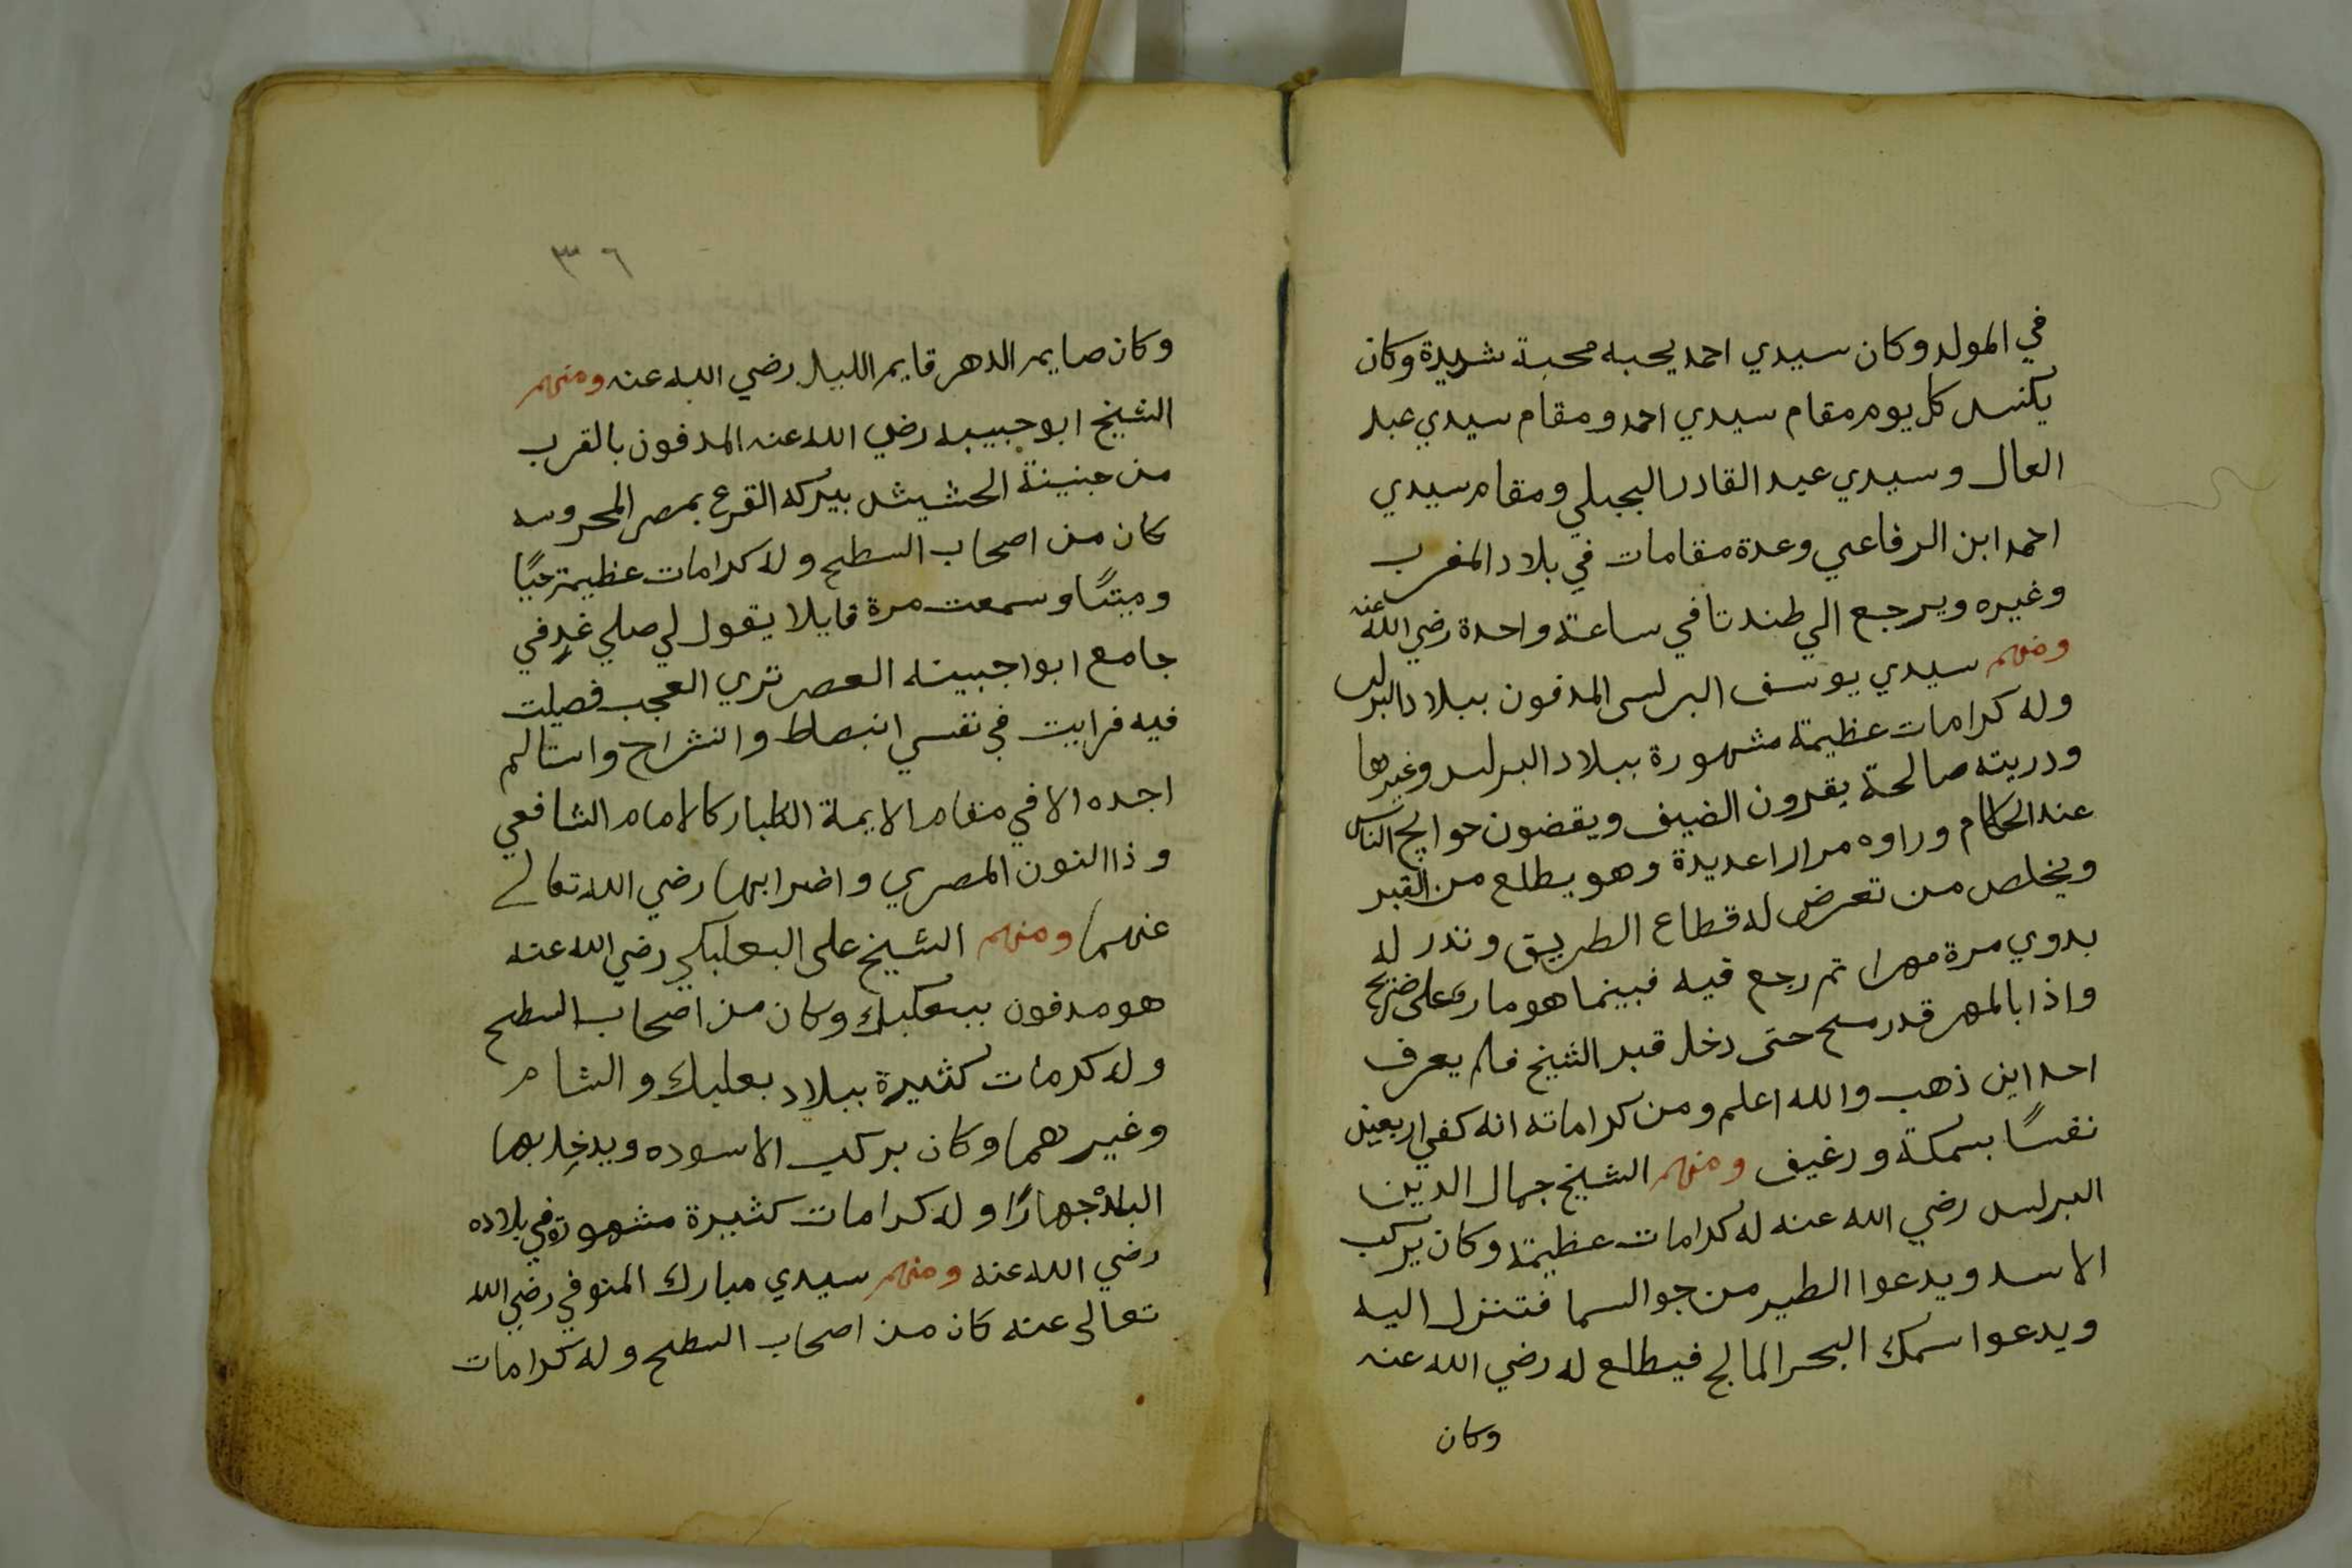 في المولد وكان سيدي احمد يحبه محبة شديدة وكان
يكنس كل يوم مقام سيدي احمد ومقام سيدي عبد
العال وسيدي عبد القادر الجيلي ومقام سيدي
احمد ابن الرفاعي وعدة مقامات في بلاد المغرب
وغيره ويرجع الي طندتا في ساعة واحدة رضي الله عنه
ومنهم سيدي يوسف البرلسي المدفون ببلاد البرلس
وله كرامات عظيمة مشهورة ببلاد البرلس وغيرها
ودريته صالحة يقرون الضيف ويقضون حوايج الناس
عند الحكام وراوه مرارا عديدة وهو يطلع من القبر
ويخلص من تعرض له قطاع الطريق وندر له
بدوي مرة مهرا تم رجع فيه فبينما هو مار علي ضريح
واذا بالمهر قد رمح حتى دخل قبر الشيخ فلم يعرف
احد اين ذهب والله اعلم ومن كراماته انه كفي اربعين
نفسًا بسمكة ورغيف ومنهم الشيخ جمال الدين
البرلس رضي الله عنه له كرامات عظيمة وكان يركب
الاسد ويدعوا الطير من جو السما فتنزل اليه
ويدعوا سمك البحر المالح فيطلع له رضي الله عنه
وكان
٣٦
وكان صايم الدهر قايم الليل رضي الله عنه ومنهم
الشيخ ابو جبيبه رضي الله عنه المدفون بالقرب
من جنينة الحشيش ببركه القرع بمصر المحروسه
كان من اصحاب السطح وله كرامات عظيمة حيًا
وميتًا وسمعت مرة قايلا يقول لي صلي غدٍ في
جامع ابوا جبينه العصر تري العجب فصليت
فيه فرايت في نفسي انبساط وانشراح وانسا لم
اجده الا في مقام الايمة الكبار كالامام الشافعي
وذا النون المصري واضرابهما رضي الله تعالى
عنهما ومنهم الشيخ على البعلبكي رضي الله عنه
هو مدفون ببعلبك وكان من اصحاب السطح
وله كرمات كثيرة ببلاد بعلبك والشام
وغيرهما وكان يركب الاسوده ويدخل بها
البلد جهارًا وله كرامات كثيرة مشهورة في بلاده
رضي الله عنه ومنهم سيدي مبارك المنوفي رضي الله
تعالى عنه كان من اصحاب السطح وله كرامات